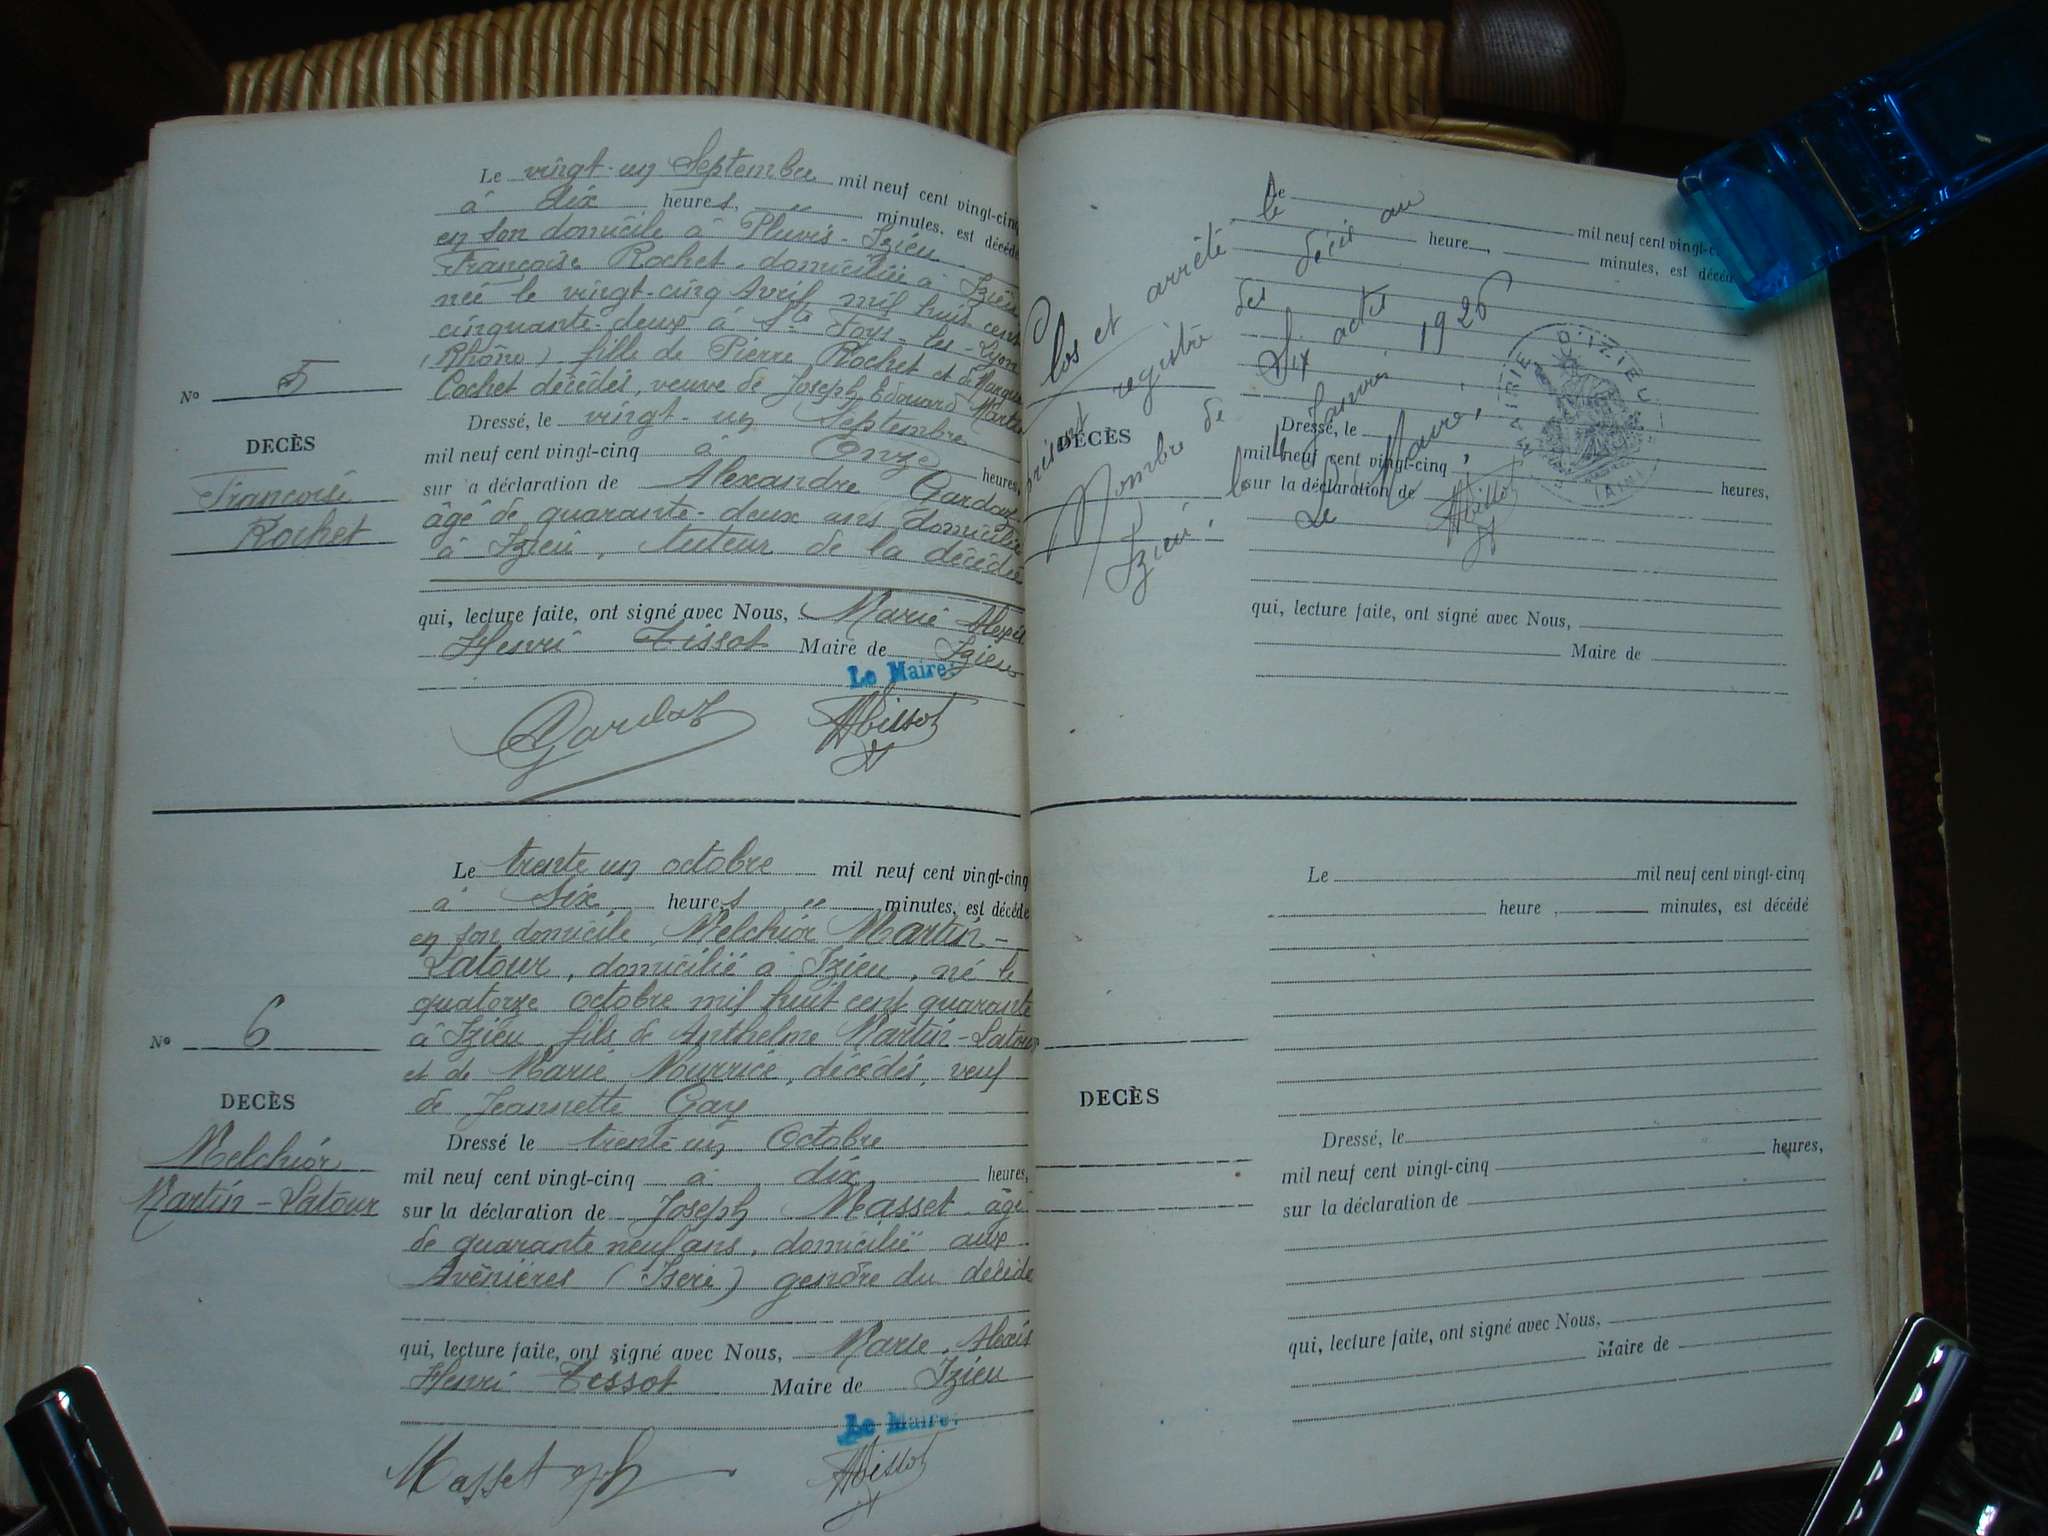 Le vingt-un Septembre mil neuf cent vingt-cinq
à dix heures, " minutes, est décédée
en son domicile à Pluvis-Izieu
Françoise Rochet, domiciliée à Izieu
née le vingt-cinq Avril mil huit cent
cinquante-deux à Ste Foys-les-Lyon
(Rhône) fille de Pierre Rochet et de
Cochet décédés, veuve de Joseph Edouard Martin
Dressé, le vingt-un Septembre
mil neuf cent vingt-cinq à Onze heures,
sur la déclaration de Alexandre Gardaz
âgé de quarante-deux ans domicilié
à Izieu, tuteur de la décédée
qui, lecture faite, ont signé avec Nous, Marie Alexis
Henri Tissot Maire de Izieu
Le Maire:
Gardaz HTissot
No 5
DECÈS
Françoise
Rochet
Le trente un octobre mil neuf cent vingt-cinq
à six heures " minutes, est décédé
en son domicile, Melchior Martin-
Latour, domicilié à Izieu, né le
quatorze octobre mil huit cent quarante
à Izieu fils de Anthelme Martin-Latour
et de Marie Nourrice, décédés, veuf
de Jeannette Gay
Dressé le trente un Octobre
mil neuf cent vingt-cinq à dix heures,
sur la déclaration de Joseph Masset âgé
de quarante neuf ans, domicilié aux
Avenières (Isère) gendre du décédé
qui, lecture faite, ont signé avec Nous, Marie, Alexis
Henri Tissot Maire de Izieu
Le Maire:
Masset HTissot
No 6
DECÈS
Melchior
Martin-Latour
Clos et arrêté le
présent registre des décès au
Nombre de de Six actes
Izieu le 4 Janvier 1926
Le Maire,
HTissot
MAIRIE D'IZIEU
(AIN)
Le mil neuf cent vingt-c
heure minutes, est décédé
DÉCÈS
Dressé, le
mil neuf cent vingt-cinq heures,
sur la déclaration de
qui, lecture faite, ont signé avec Nous,
Maire de
Le mil neuf cent vingt-cinq
heure, minutes, est décédé
DECÈS
Dressé, le
mil neuf cent vingt-cinq heures,
sur la déclaration de
qui, lecture faite, ont signé avec Nous,
Maire de